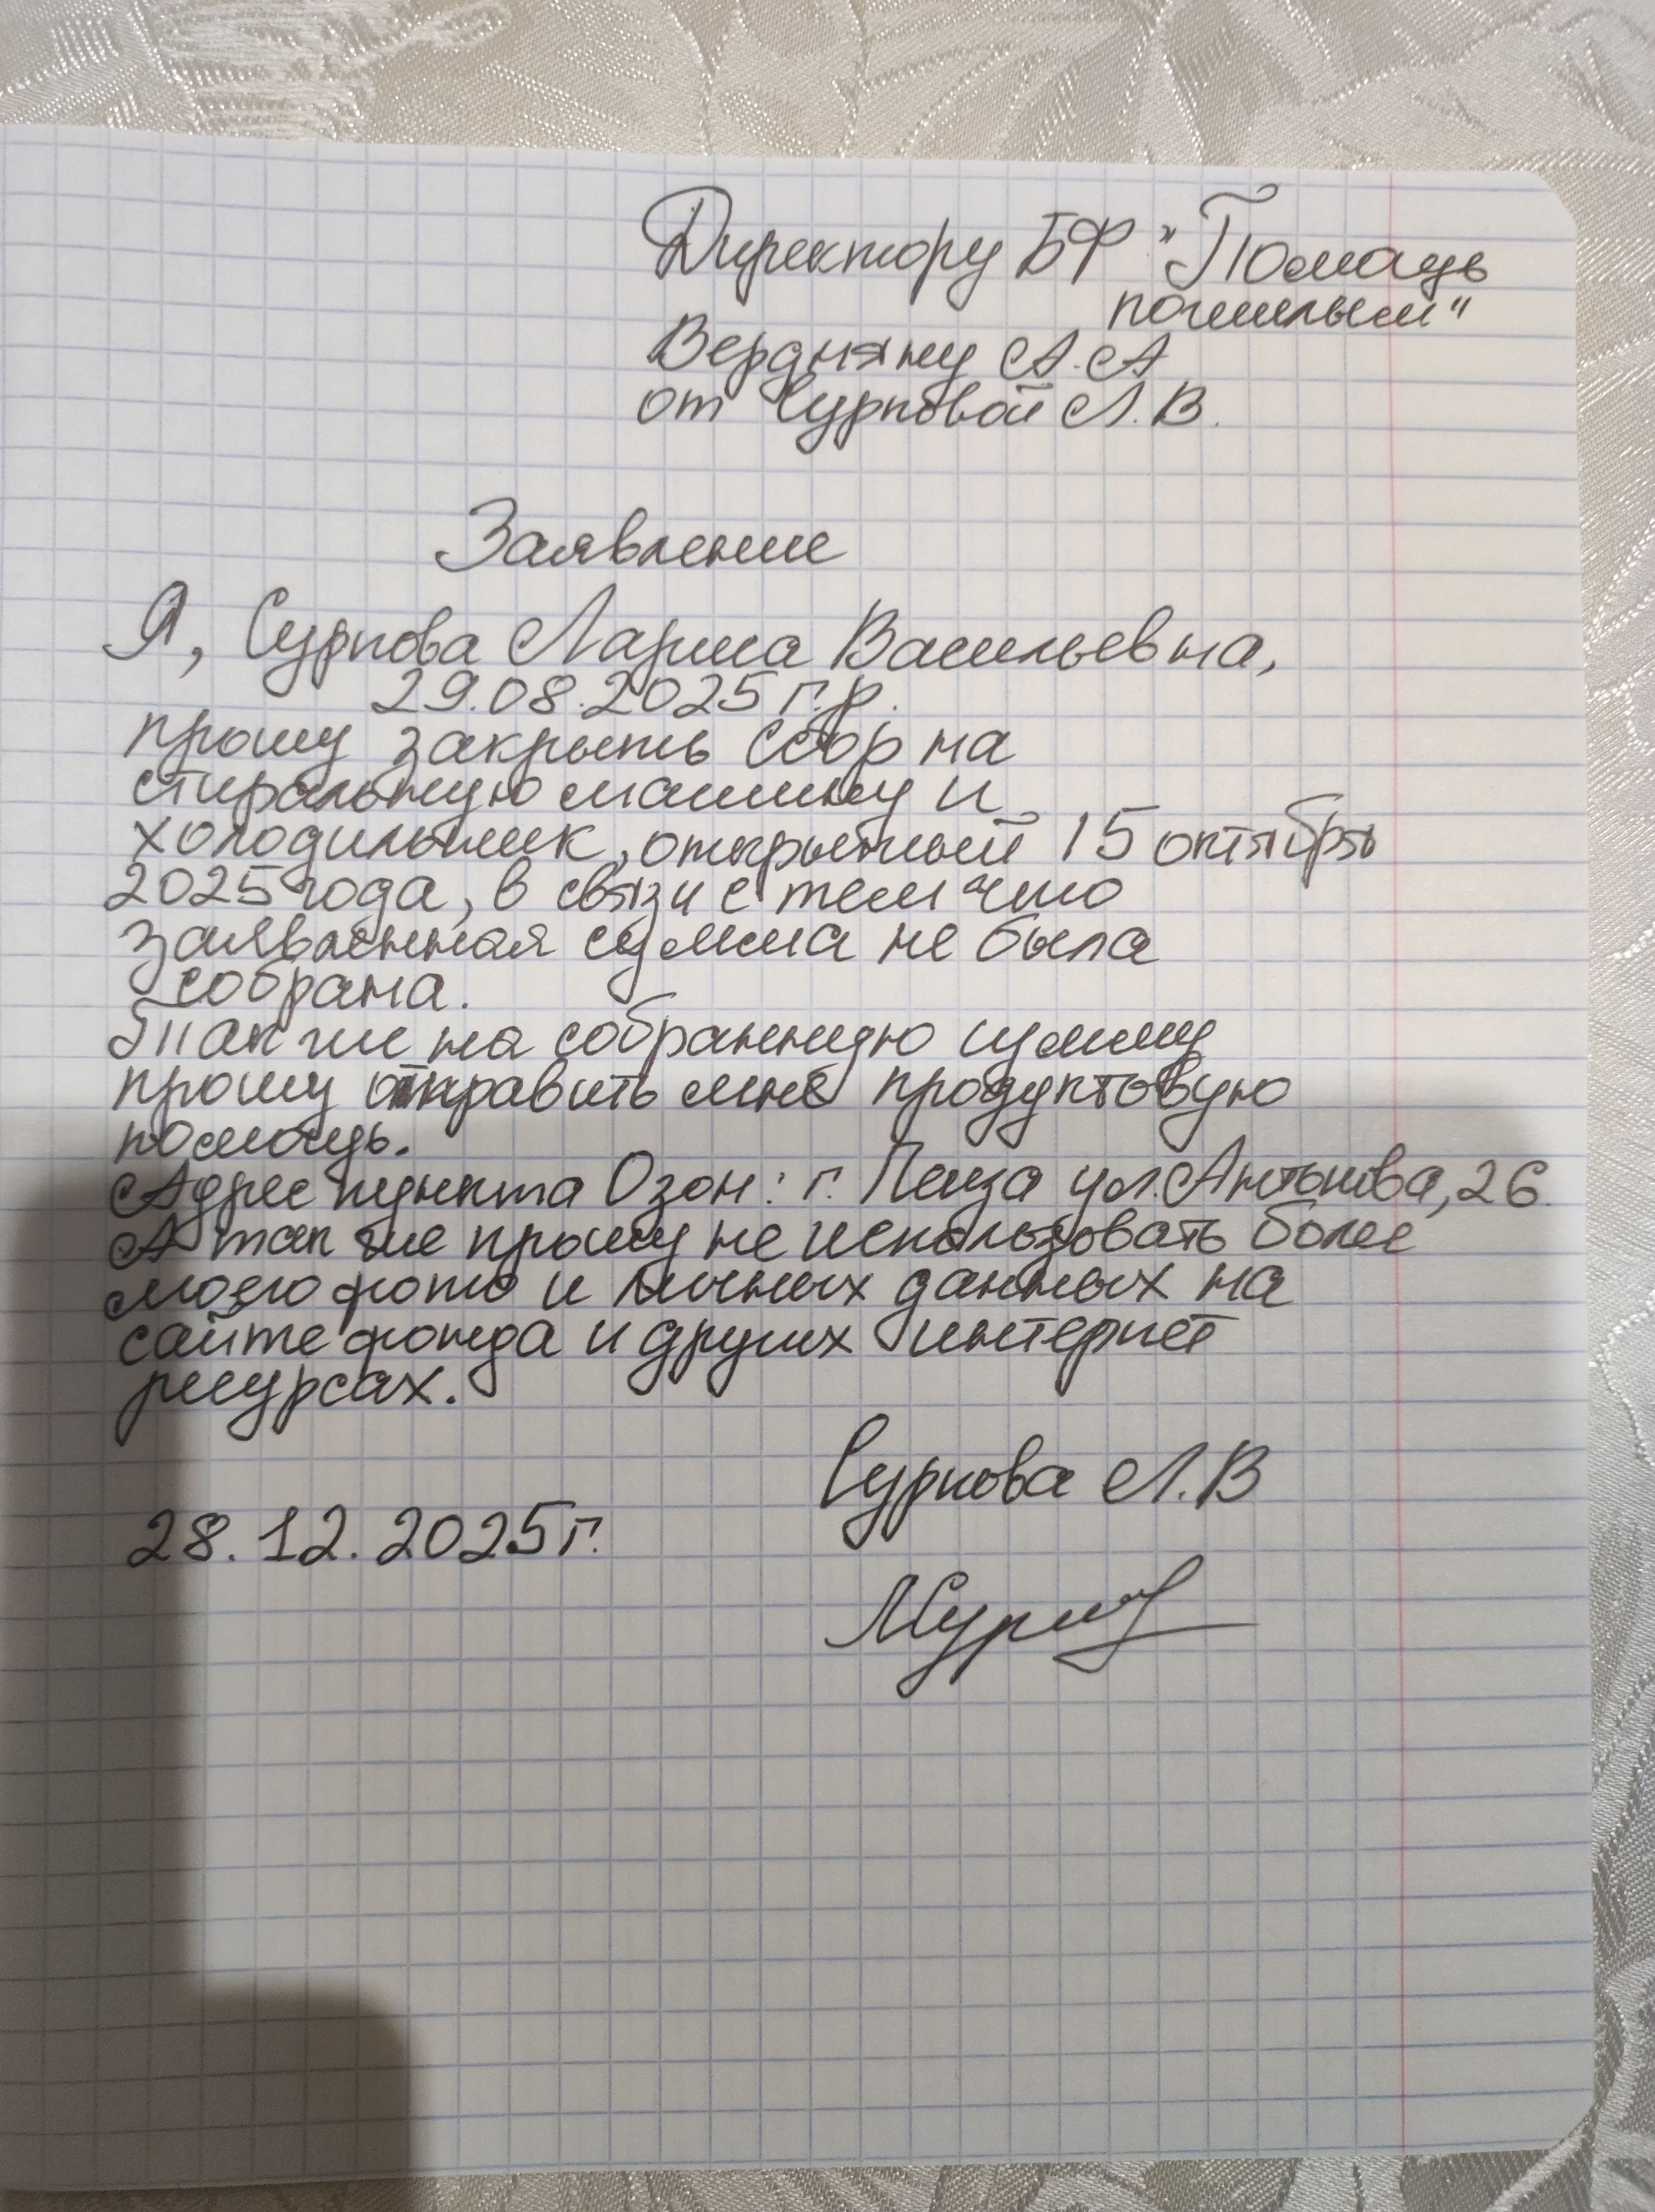 Директору БФ "Помощь
пожилым"
Вердняну А.А
от Сурковой Л.В.
Заявление
Я, Суркова Лариса Васильевна,
29.08.2025 г.р.
прошу закрыть сбор на
стиральную машину и
холодильник, открытый 15 октября
2025 года, в связи с тем что
заявленная сумма не была
собрана.
Так же на собранную сумму
прошу отправить мне продуктовую
помощь.
Адрес пункта Озон: г. Пенза ул. Антонова, 26.
А так же прошу не использовать более
моего фото и личных данных на
сайте фонда и других интернет
ресурсах.
Суркова Л.В
28.12.2025 г.